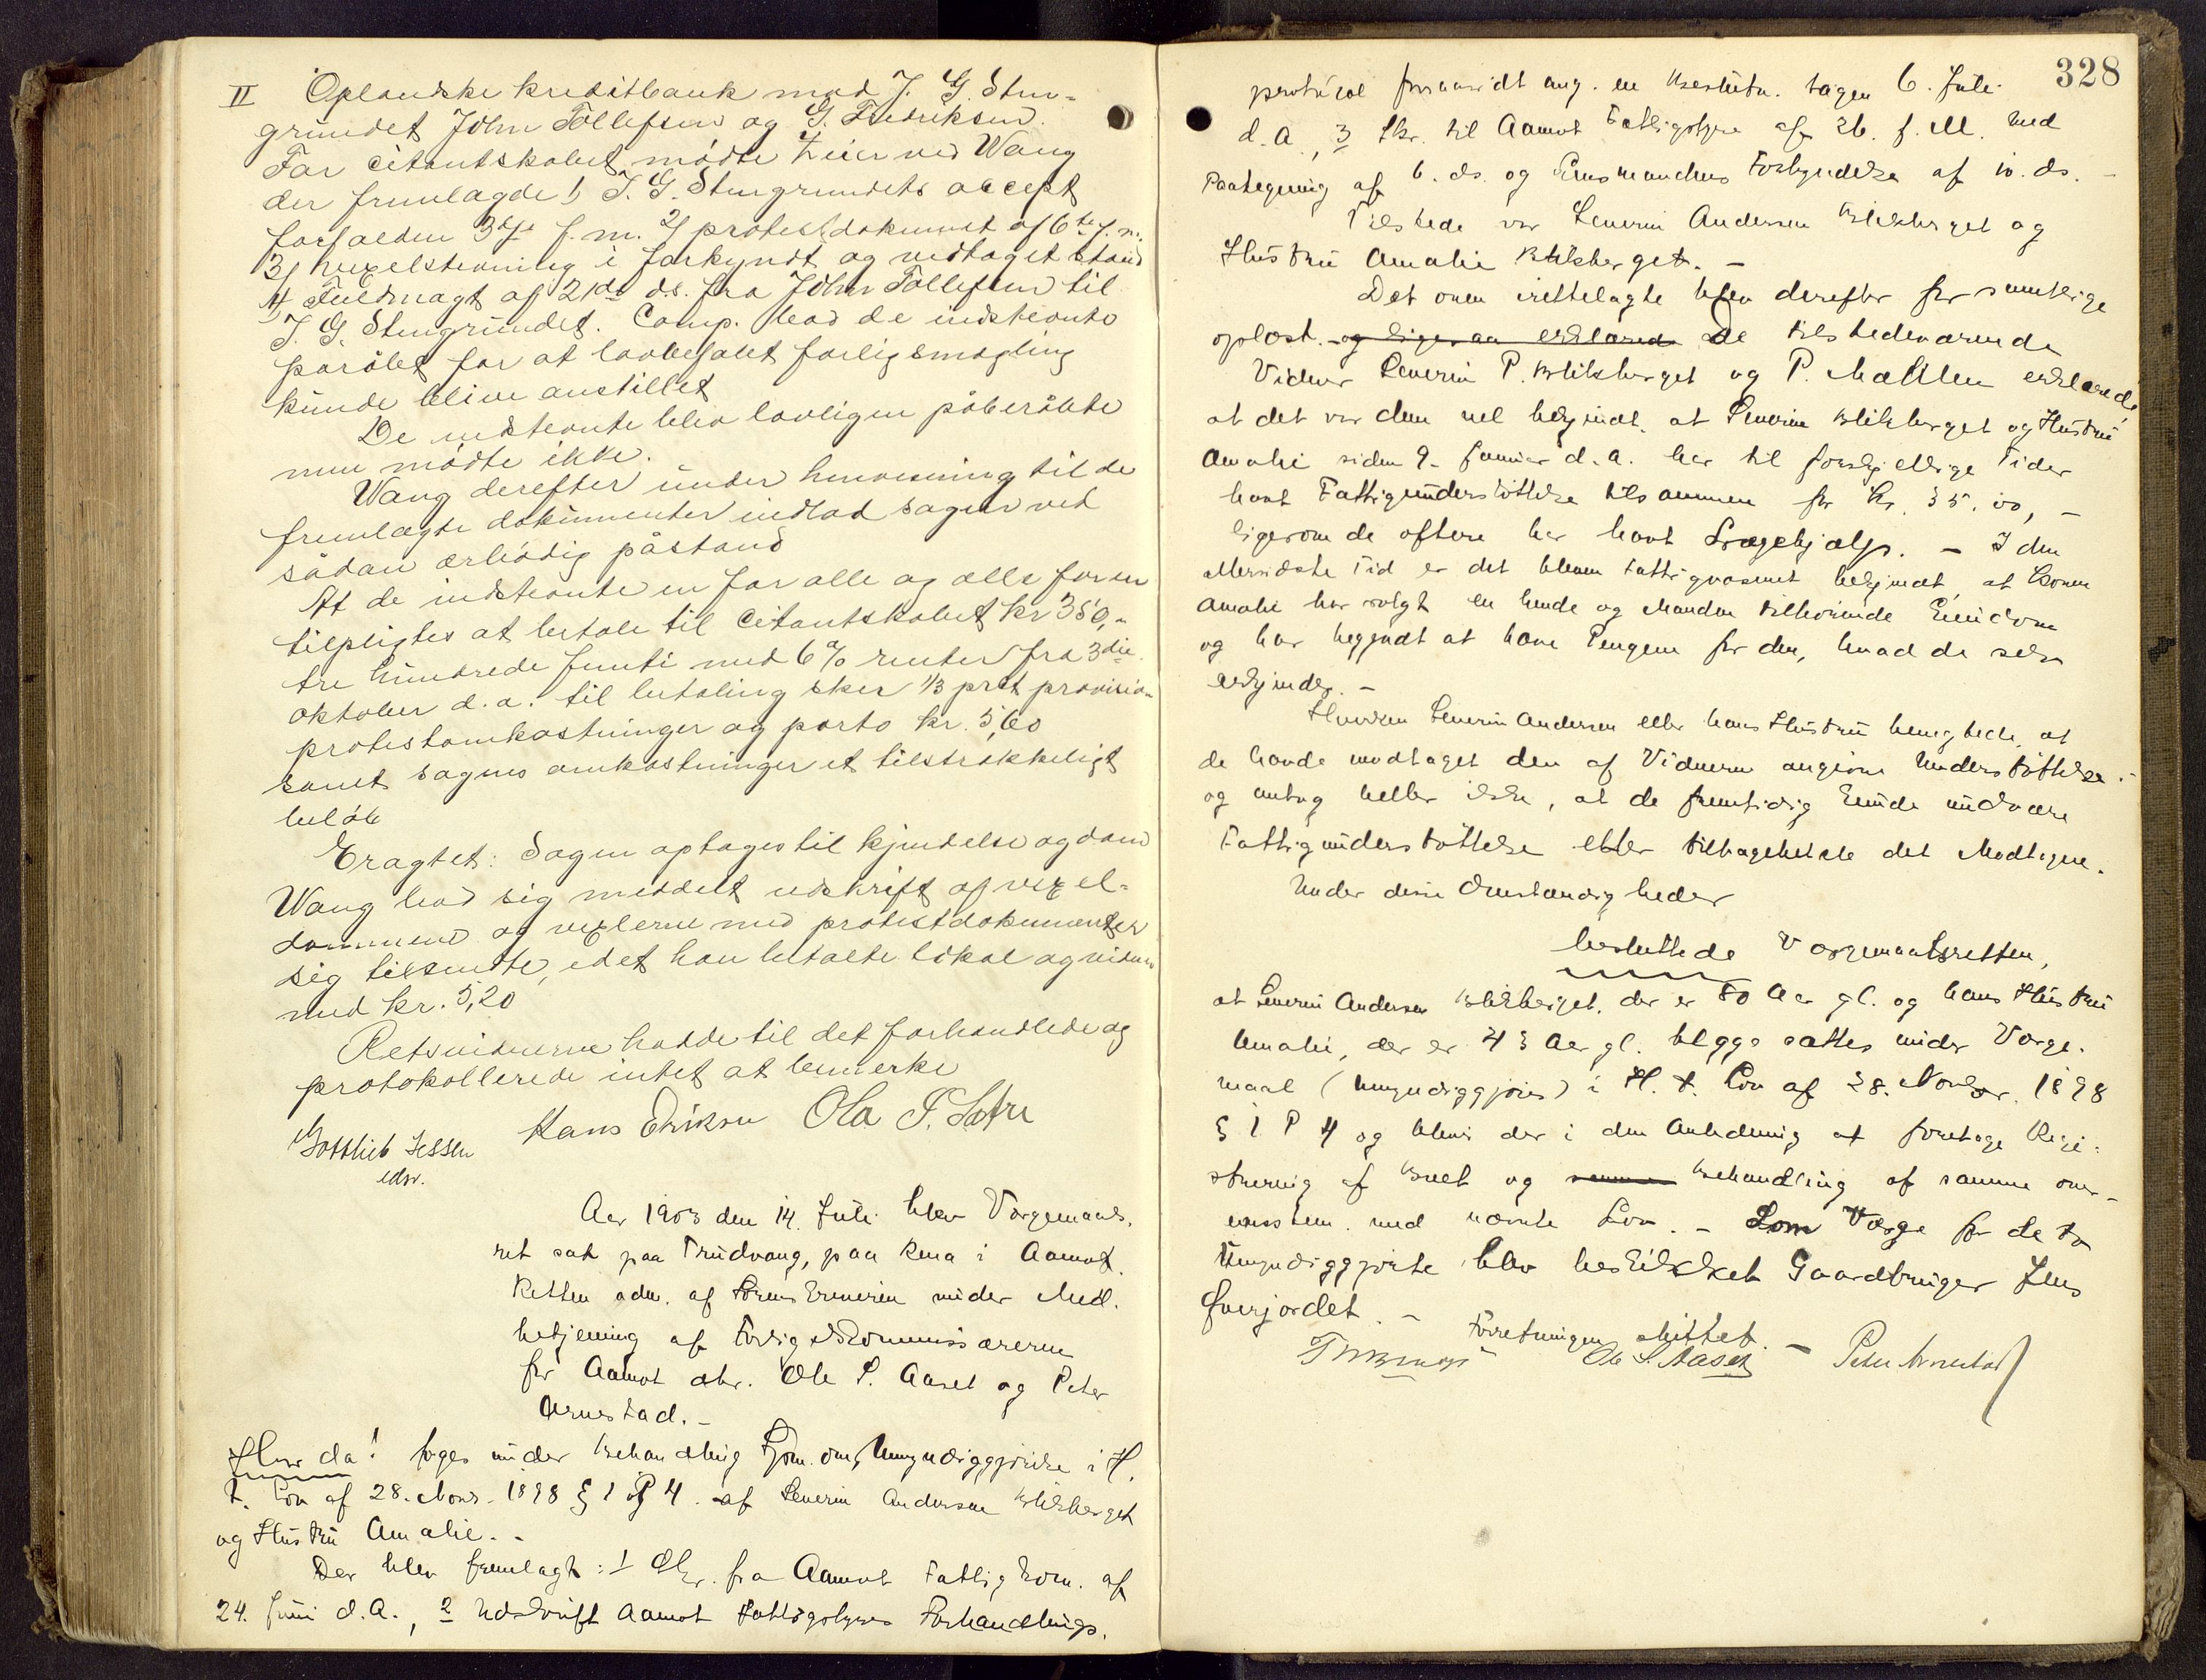 II Oplandske kreditbank mod J. G. Sten-
grundet John Tollefsen og G. Fredriksen.
For citantskabet mødte Eier ved Wang
der fremlagde 1) J. G. Stengrundets accept
forfalden 3die f. m. 2) protestdokument af 6te f. m.
3) vexelstevning i forkyndt og vedtaget stand
4) Fuldmagt af 21de ds. fra John Tollefsen til
J. G. Stengrundet. Comp. bad de indstevnte
paråbt for at lovbefalet forligsmægling
kunde blive anstillet
De indstevnte blev lovligen påberåbte
men mødte ikke.
Wang derefter under henvisning til de
fremlagte dokumenter indlod sagen ved
sådan ærbødig påstand
At de indstevnte en for alle og alle for en
tilpligtes at betale til Citantskabet kr 350,-
tre hundrede femti med 6% renter fra 3die
oktober d. a. til betaling sker 1/3 prct provision
protestomkostninger og porto kr. 5,60
samt sagens omkostninger et tilstrækkeligt
beløb
Eragtet: Sagen optages til kjendelse og dom
Wang bad sig meddelt udskrift af vexel-
dommene og vexlerne med protestdokumenter
sig tilsendte, idet han betalte lokal og vidner
med kr. 5,20
Retsvidnerne hadde til det forhandlede og
protokollerede intet at bemerke
Gottlieb Jessen Hans Eriksen Ola P. Sætre
edsv.
Aar 1903 den 14. Juli blev Værgemaals-
ret sat paa Trudvang, paa Rena i Aamot.
Retten adm. af Sorenskriveren under Med-
betjening af Forligskommissærerne
for Aamot Ole S. Aaset og Peter
Arnestad. -
Hvorda! foges under Behandling Spm. om Umyndiggjørelse i H.
t. Lov af 28. Novbr. 1898 § 1 P 4. af Severin Andersen Blikberget
og Hustru Amalie. -
Der blev fremlagt: 1 Skr. fra Aamot Fattigkom. af
24. Juni d. A., 2 Udskrift Aamot Fattigstyres Forhandlings-
328
protocol forsaavidt ang. en Beslutn. tagen 6. Juli
d. A., 3 Skr. til Aamot Fattigstyre af 26. f. M. med
Paategning af 6. ds. og Lensmandens Forkyndelse af 10. ds. -
Tilstede var Severin Andersen Blikberget og
Hustru Amalie Blikberget. -
Det oven irettelagte blev derefter for samtlige
oplæst. - og ligesaa erklærede De tilstedeværende
Vidner Severin P. Blikberget og P. Mællen erklærede,
at det var dem vel bekjendt, at Severin Blikberget og Hustru
Amalie siden 9. Januar d. A. har til forskjellige Tider
havt Fattigunderstøttelse tilsammen for Kr. 35.00, -
ligesom de oftere har havt Lægehjælp. - I den
allersidste Tid er det bleven Fattigvæsenet bekjendt, at Konen
Amalie har solgt en hende og Manden tilhørende Eiendom
og har begyndt at hæve Pengene for den, hvad de selv
erkjender. -
Hverken Severin Andersen eller hans Hustru benegtede, at
de havde modtaget den af Vidnerne angivne Understøttelse. -
og antog heller ikke, at de fremtidig kunde undvære
Fattigunderstøttelse eller tilbagebetale det Modtagne.
Under disse Omstændigheder
besluttede Værgemaalsretten,
at Severin Andersen Blikberget, der er 80 Aar gl. og hans Hustru
Amalie, der er 43 Aar gl. begge sættes under Værge-
maal (umyndiggjøres) i H. t. Lov af 28. Novbr. 1898
§ 1 P 4 og blev der i den Anledning at foretage Regi-
strering af Boet og Behandling af samme over-
ensstem. med nævnte Lov. - Som Værge for de to
Umyndiggjorte blev beskikket Gaardbruger Jens
Øverjordet. -
Forretningen sluttet. -
Ole S. Aaset Peter Arnestad